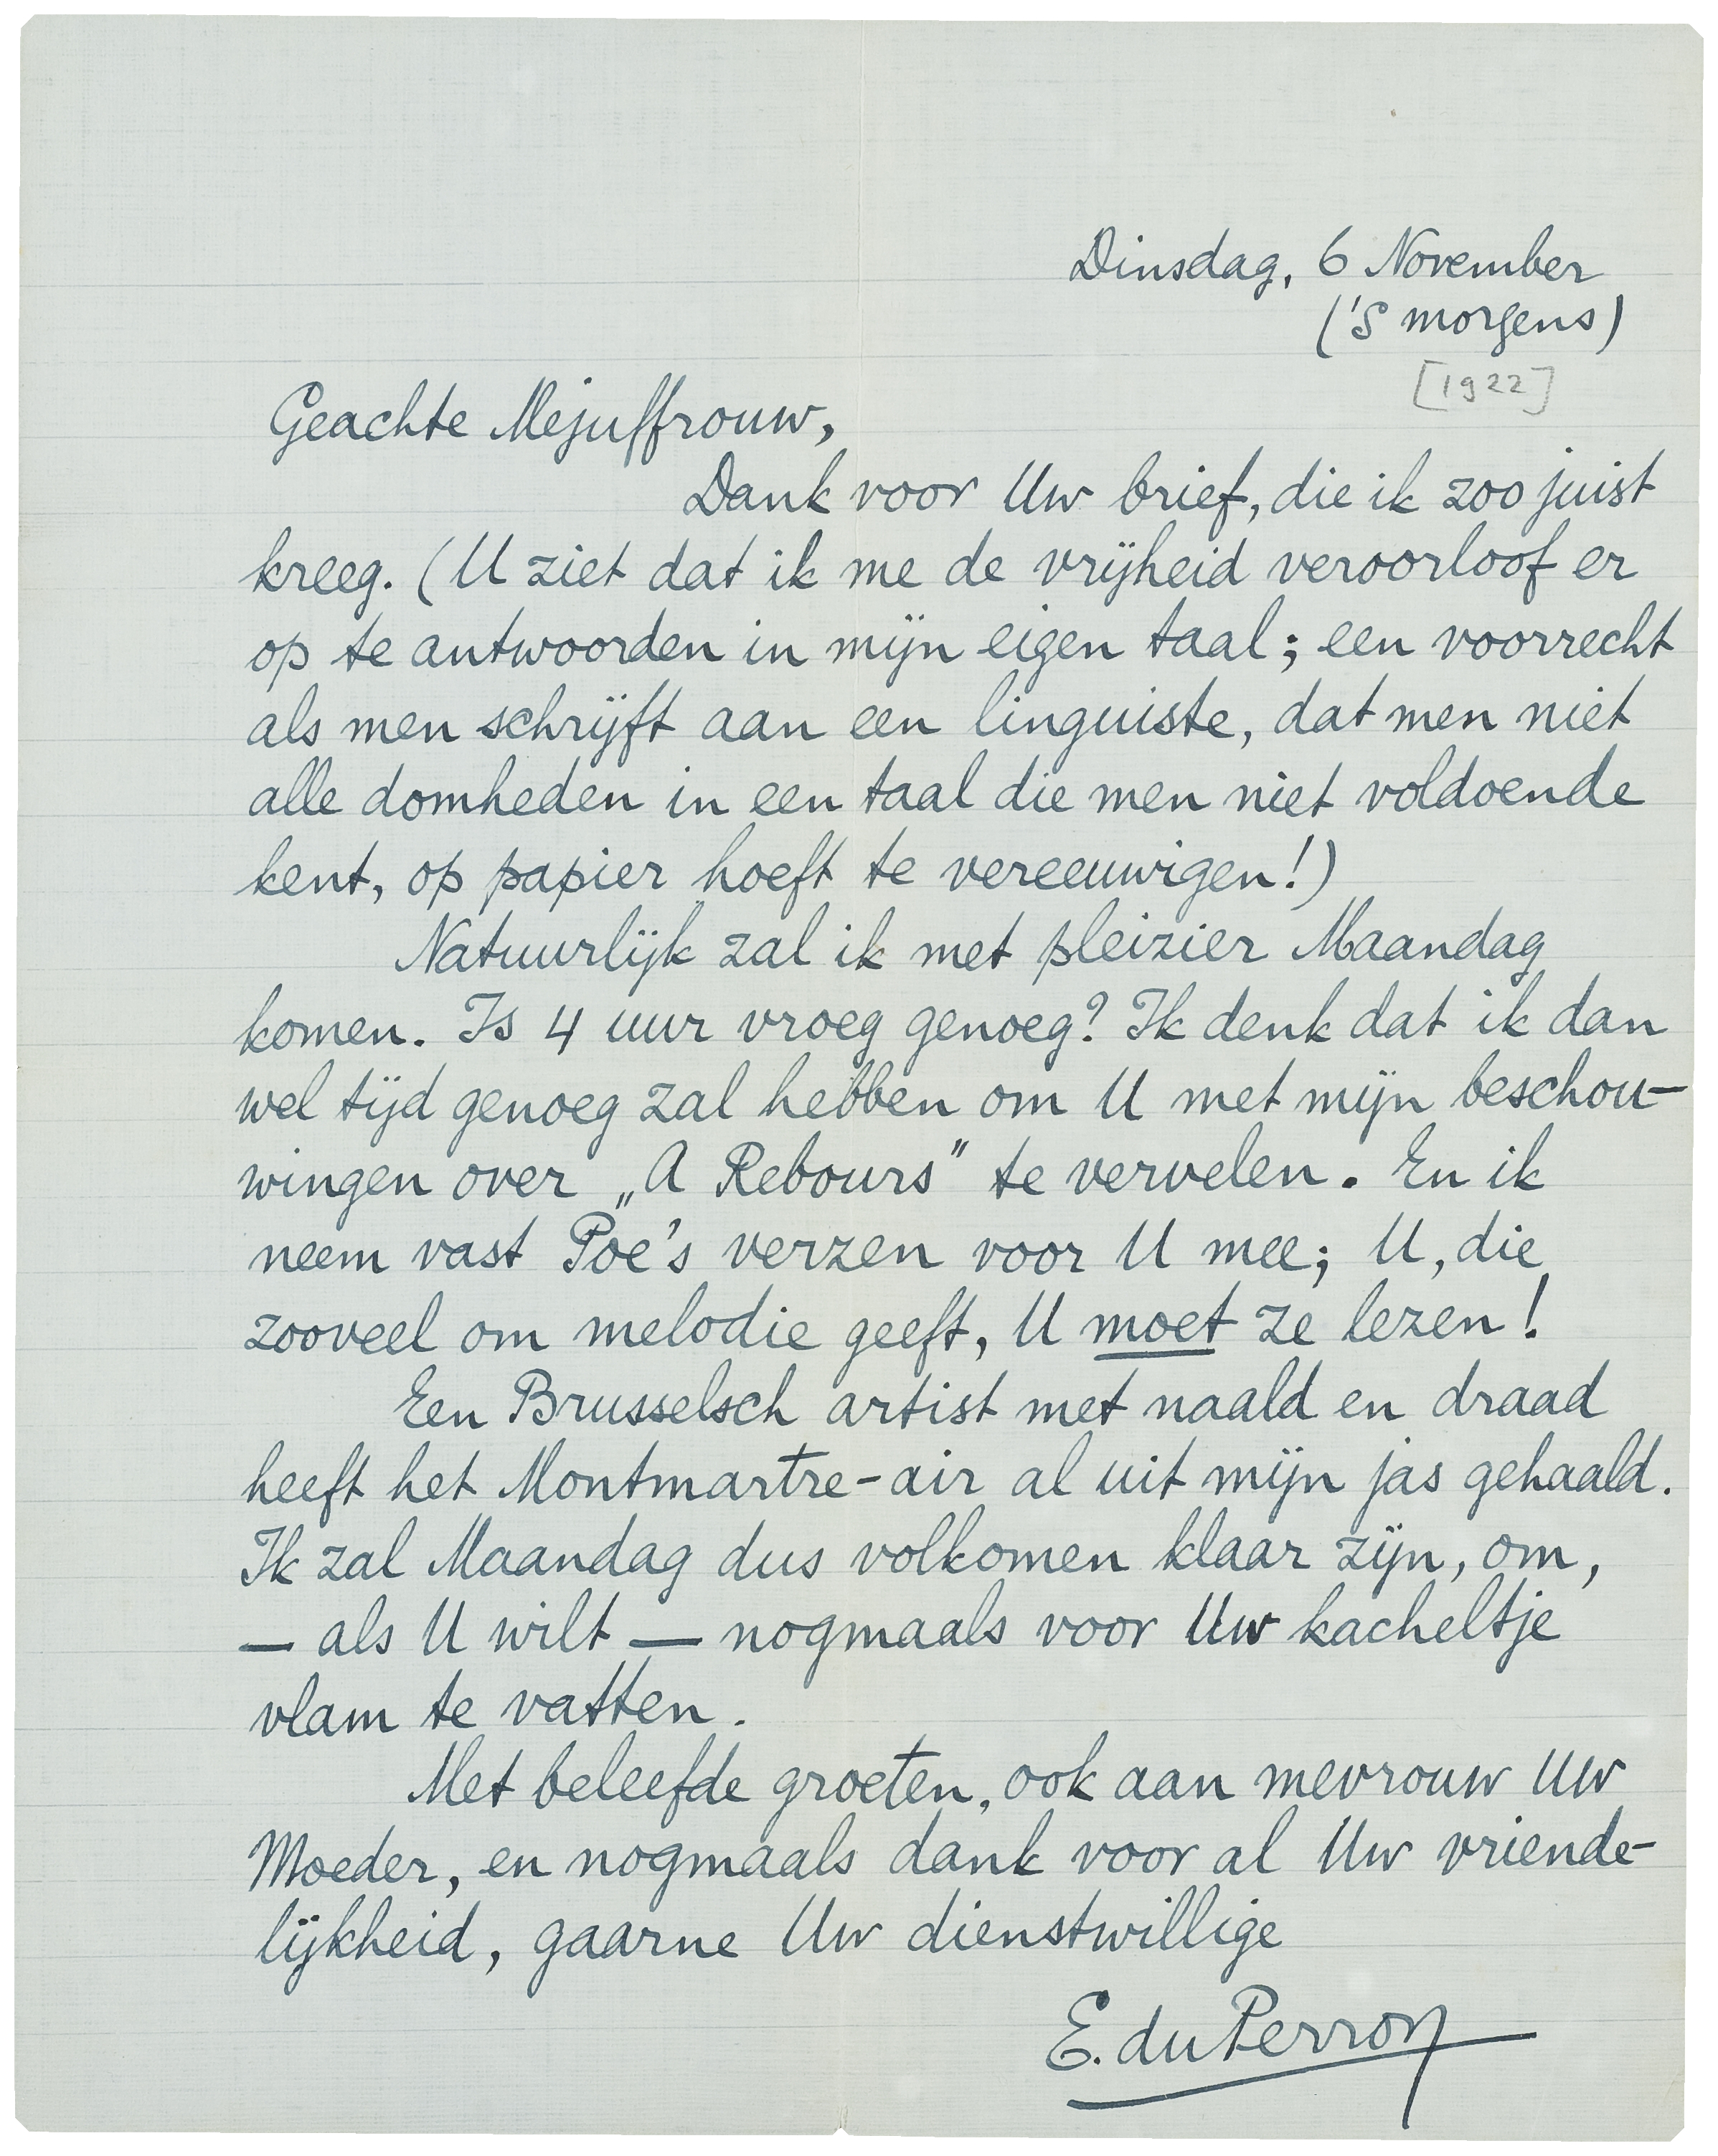 Dinsdag, 6 November
('S morgens)
[1922]
Geachte Mejuffrouw,
Dank voor Uw brief, die ik zoo juist
kreeg. (U ziet dat ik me de vrijheid veroorloof er
op te antwoorden in mijn eigen taal; een voorrecht
als men schrijft aan een linguiste, dat men niet
alle domheden in een taal die men niet voldoende
kent, op papier hoeft te vereeuwigen!)
Natuurlijk zal ik met pleizier Maandag
komen. Is 4 uur vroeg genoeg? Ik denk dat ik dan
wel tijd genoeg zal hebben om U met mijn beschou-
wingen over „A Rebours" te vervelen. En ik
neem vast Poe's verzen voor U mee; U, die
zooveel om melodie geeft, U moet ze lezen!
Een Brusselsch artist met naald en draad
heeft het Montmartre-air al uit mijn jas gehaald.
Ik zal Maandag dus volkomen klaar zijn, om,
— als U wilt — nogmaals voor Uw kacheltje
vlam te vatten.
Met beleefde groeten, ook aan mevrouw Uw
Moeder, en nogmaals dank voor al Uw vriende-
lijkheid, gaarne Uw dienstwillige
E. du Perron